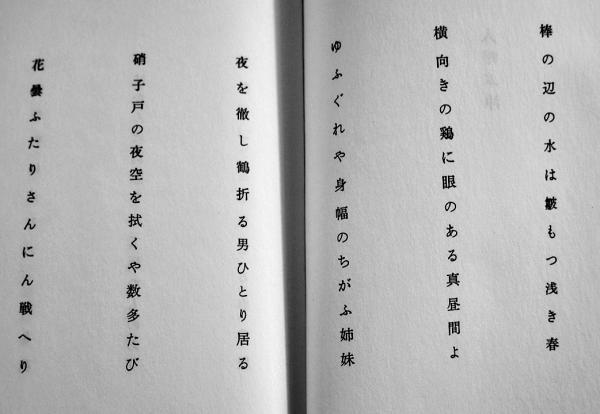 棒の辺の水は皺もつ浅き春
横向きの鶏に眼のある真昼間よ
ゆふぐれや身幅のちがふ姉妹
夜を徹し鶴折る男ひとり居る
硝子戸の夜空を拭くや数多たび
花曇ふたりさんにん戦へり